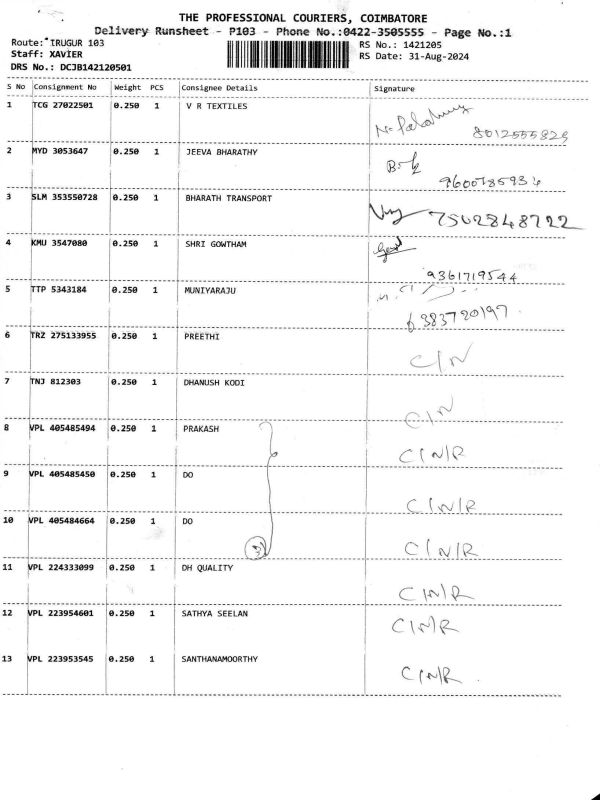 THE PROFESSIONAL COURIERS, COIMBATORE
Delivery Runsheet - P103 - Phone No.:0422-3505555 - Page No.:1
Route: IRUGUR 103
RS No.: 1421205
Staff: XAVIER
RS Date: 31-Aug-2024
DRS No.: DCJB142120501
S No Consignment No Weight PCS Consignee Details Signature
1 TCG 27022501 0.250 1 V R TEXTILES
8012555829
2 MYD 3053647 0.250 1 JEEVA BHARATHY
9600785936
3 SLM 353550728 0.250 1 BHARATH TRANSPORT
7502848722
4 KMU 3547080 0.250 1 SHRI GOWTHAM
9361719544
5 TTP 5343184 0.250 1 MUNIYARAJU
6383720197
6 TRZ 275133955 0.250 1 PREETHI
C/N
7 TNJ 812303 0.250 1 DHANUSH KODI
C/N
8 VPL 405485494 0.250 1 PRAKASH
C/N/R
9 VPL 405485450 0.250 1 DO
C/N/R
10 VPL 405484664 0.250 1 DO
3
C/N/R
11 VPL 224333099 0.250 1 DH QUALITY
C/N/R
12 VPL 223954601 0.250 1 SATHYA SEELAN
C/N/R
13 VPL 223953545 0.250 1 SANTHANAMOORTHY
C/N/R